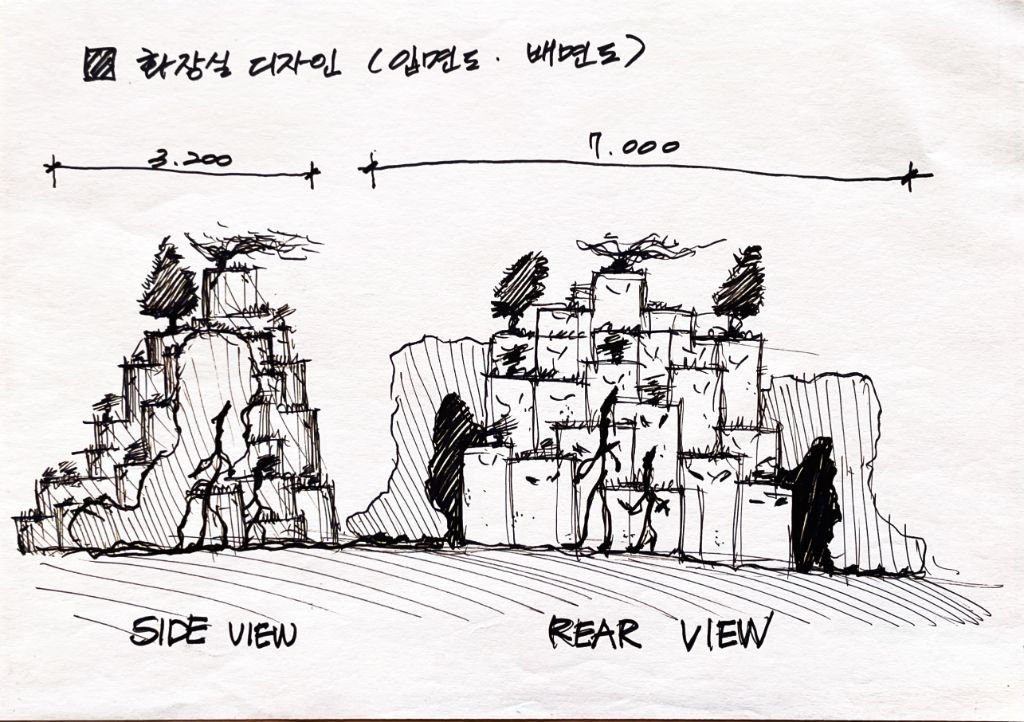 화장실 디자인 (입면도. 배면도)
3.200 7.000
SIDE VIEW REAR VIEW